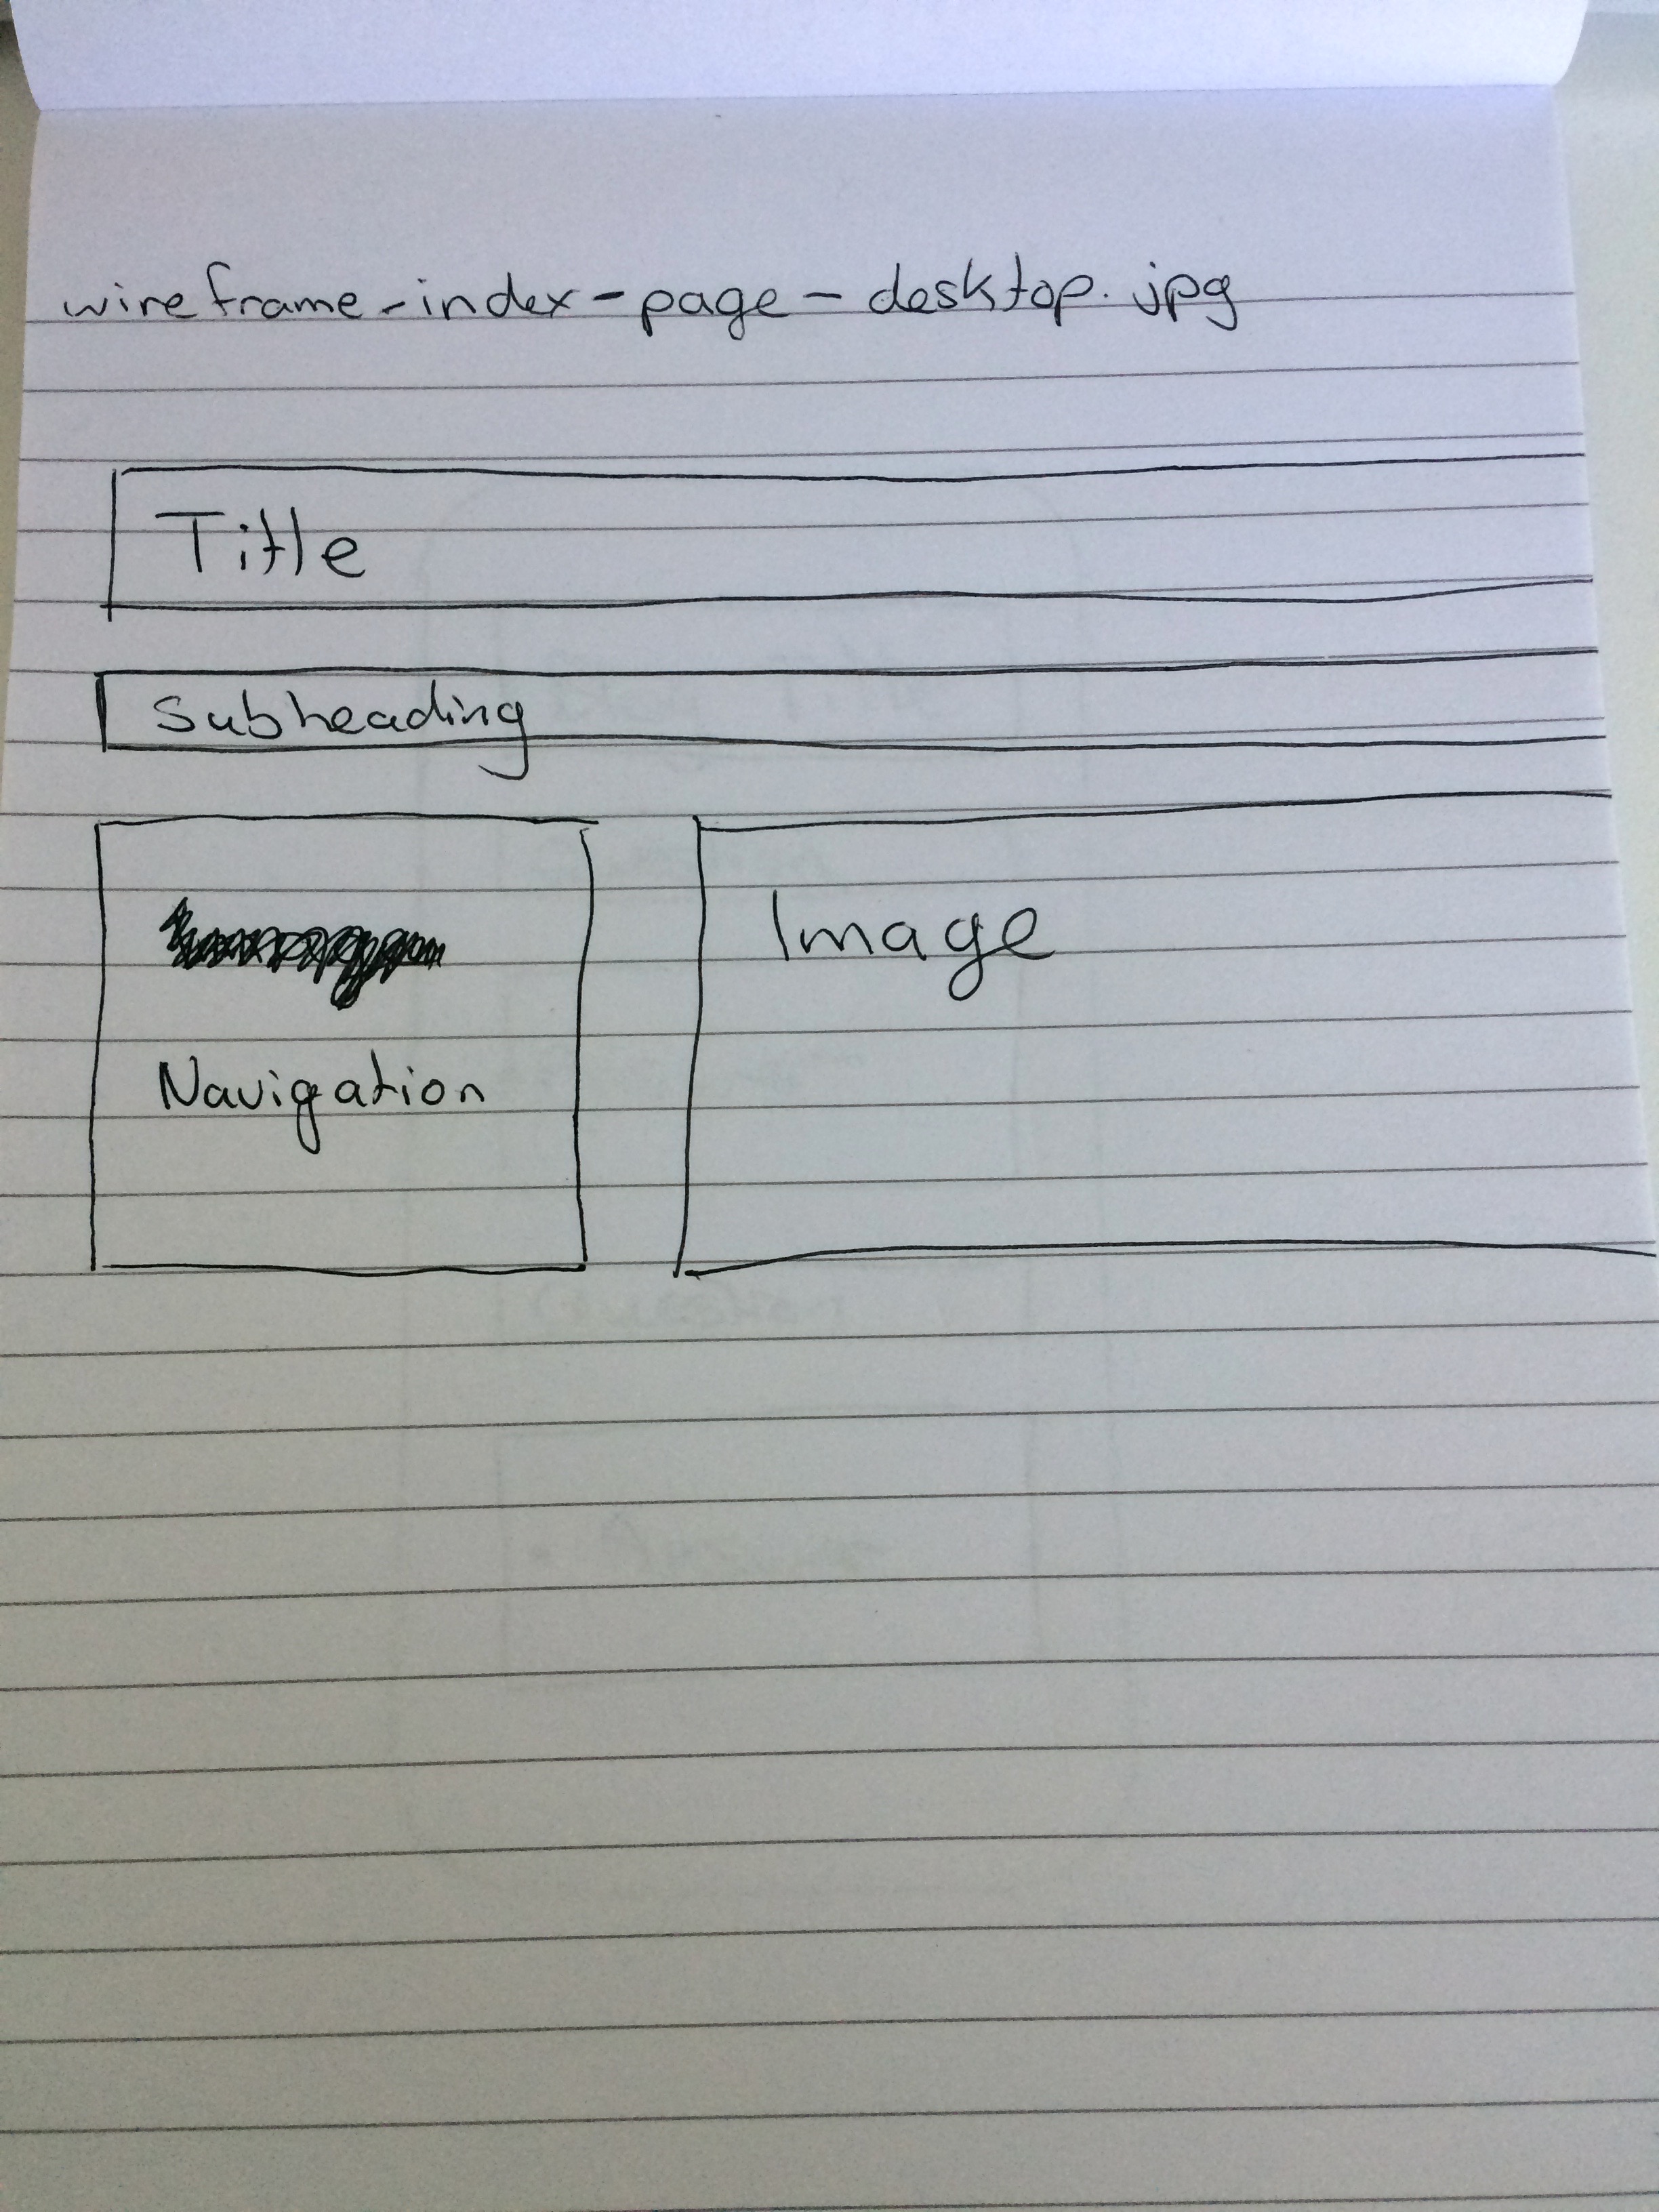 wireframe-index-page-desktop.jpg
Title
Subheading
Image
Navigation